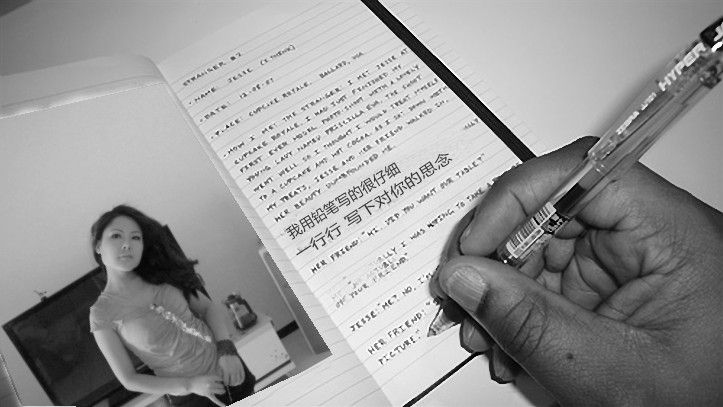 STRANGER #2
NAME: JESSE
DATE: 12.05.07
PLACE: CUPCAKE ROYALE. BALLARD, WA.
HOW I MET THE STRANGER: I MET JESSE AT
CUPCAKE ROYALE. I HAD JUST FINISHED MY
FIRST EVER MODEL PHOTO SHOOT WITH A LOVELY
YOUNG LADY NAMED PRISCILLIA EVE. THE SHOOT
WENT WELL SO I THOUGHT I WOULD TREAT MYSELF
TO A CUPCAKE AND HOT COCOA. AS I SAT DOWN WITH
MY TREATS, JESSE AND HER FRIEND WALKED IN.
HER BEAUTY DUMBFOUNDED ME.
我用铅笔写的很仔细
一行行 写下对你的思念
HER FRIEND: "HI. YEP YOU WANT OUR TABLET"
I WAS HOPING TO TAKE A
OF YOUR FRIEND"
JESSE: NO, I'M
HER FRIEND:
PICTURE."
HYPER